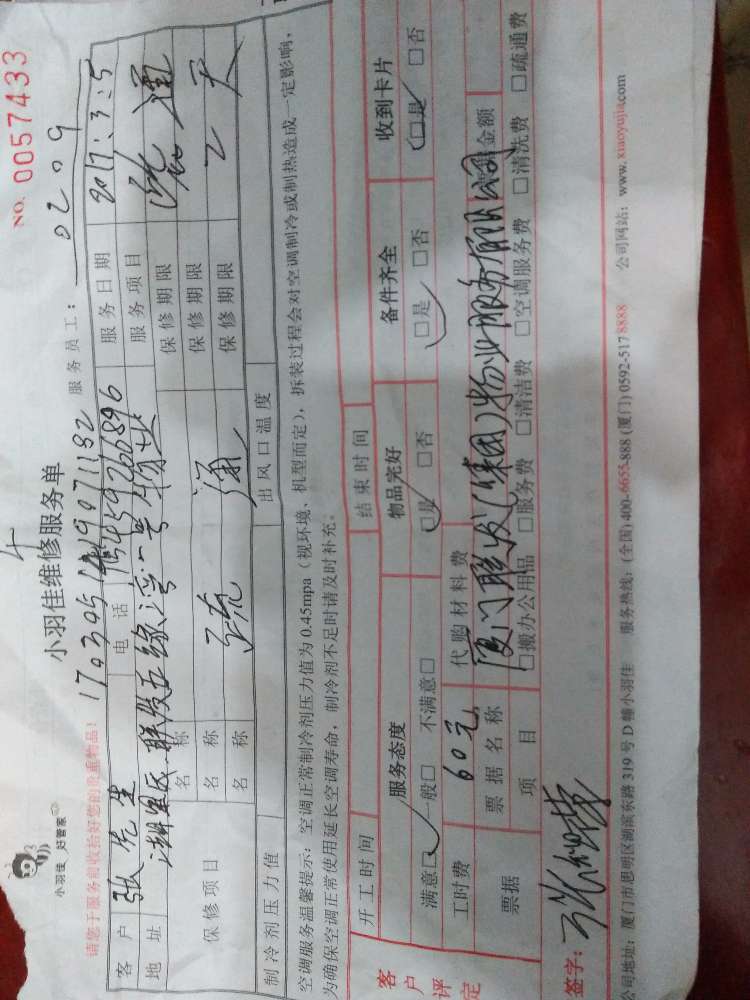 小羽佳 好管家
小羽佳维修服务单
NO. 0057433
请您于服务前收拾好您的贵重物品!
服务员工: 0209
客户 张先生 电话 服务日期 2017.3.5
地址 湖里区联发五缘湾一号物业 服务项目 疏通
保修项目
名称 保修期限
名称 疏通 保修期限 乙天
名称 保修期限
制冷剂压力值 出风口温度
空调服务温馨提示: 空调正常制冷剂压力值为0.45mpa(视环境、机型而定), 拆装过程会对空调制冷或制热造成一定影响,
为确保空调正常使用延长空调寿命, 制冷剂不足时请及时补充。
开工时间 结束时间
客户评定
服务态度 物品完好 备件齐全 收到卡片
满意□ 一般□ 不满意□ □是 □否 □是 □否 □是 □否
工时费 60元 代购材料费 金额
票据 票据名称 厦门联发(集团)物业服务有限公司
项目 □搬办公用品 □服务费 □清洁费 □空调服务费 □清洗费 □疏通费
签字:
公司地址: 厦门市思明区湖滨东路319号D幢小羽佳 服务热线: (全国)400-6655-888 (厦门)0592-5178888 公司网站: www.xiaoyujia.com